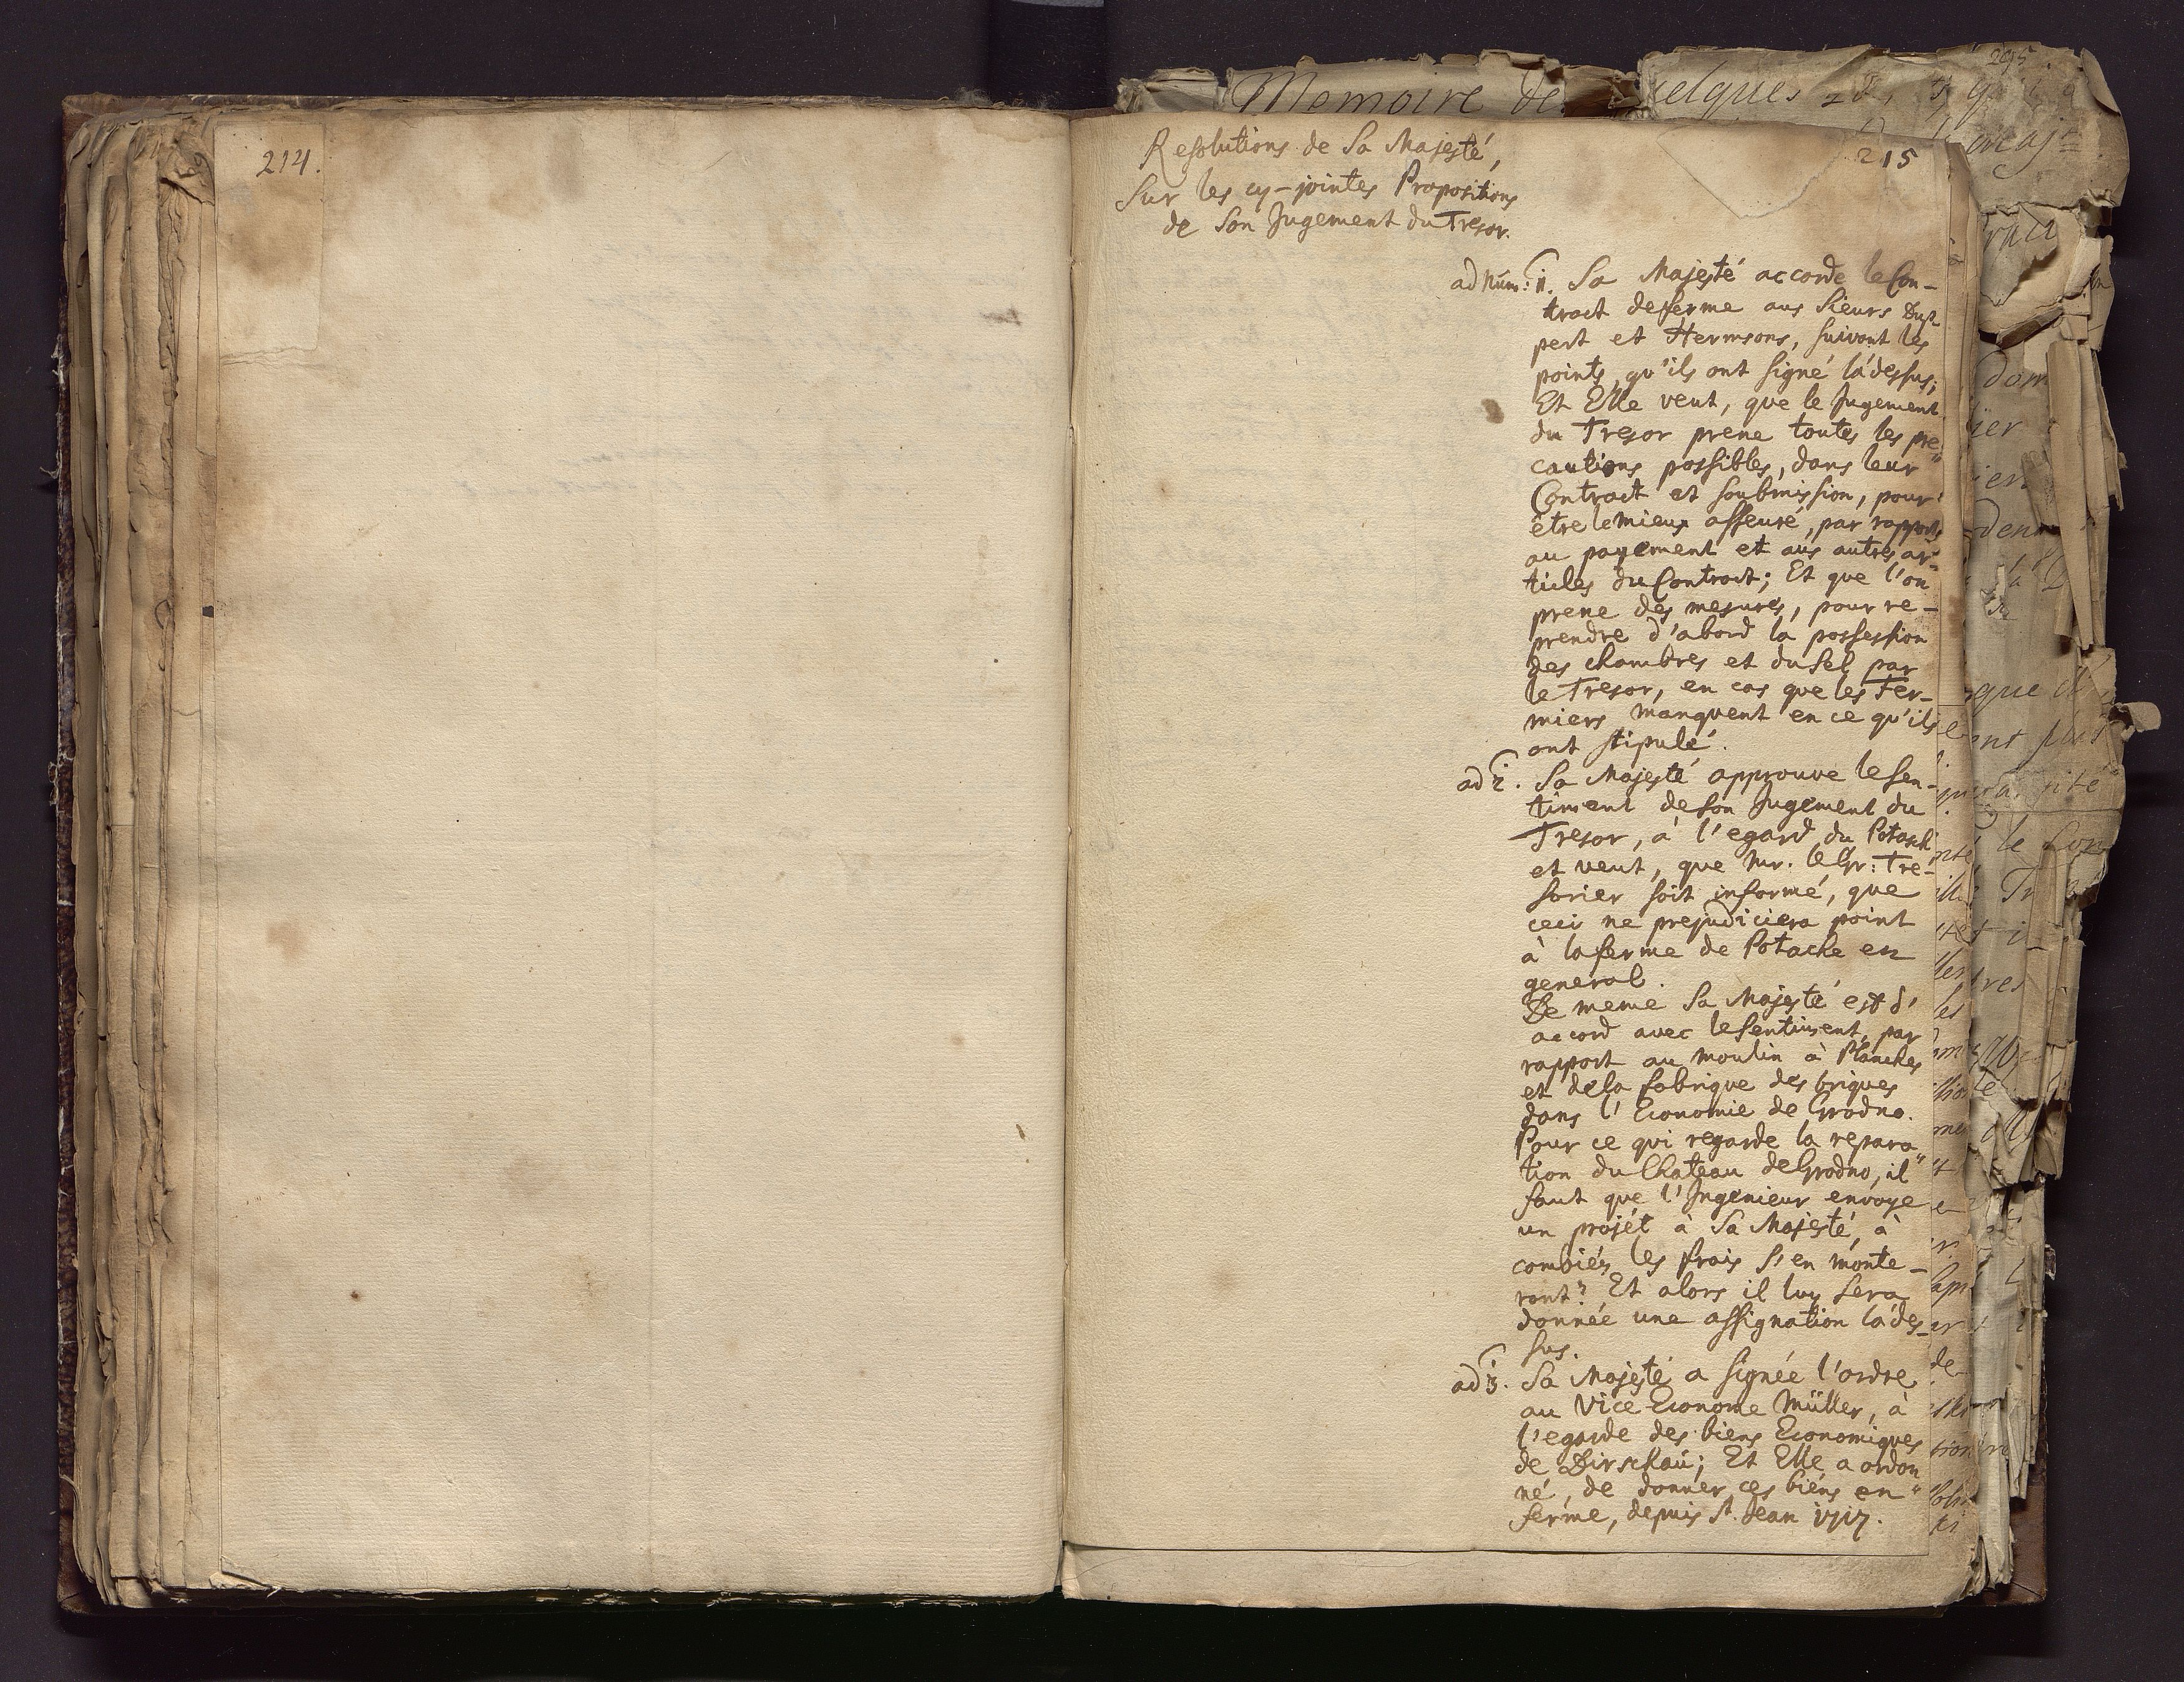 214.
215
Resolutions de Sa Majesté,
sur les cy-jointes Propositions
de Son Jugement du Tresor.
ad Num: 1. Sa Majesté accorde le Con-
tract de ferme aus Sieurs
pert et Hermsons, suivant les
points, qu'ils ont signé làdessus;
Et Elle veut, que le Jugement
du Tresor prene toutes les pre-
cautions possibles, dans leur
Contract et soubmission, pour
être le mieux asseuré, par rapport
au payement et aus autres ar-
ticles du Contract; Et que l'on
prene des mesures, pour re-
prendre d'abord la possession
des chambres et du Sel par
le Tresor, en cas que les Fer-
miers manquent en ce qu'ils
ont stipulé.
ad 2. Sa Majesté approuve le sen-
timent de son Jugement du
Tresor, à l'egard du Potasch
et veut, que Mr. le Gr: Tre-
sorier soit informé, que
ceci ne prejudiciera point
à la ferme de Potache en
general.
De meme Sa Majesté est d'
accord avec le sentiment, par
rapport au moulin à Planches
et de la fabrique des briques
dans l'Economie de Grodno.
Pour ce qui regarde la repara-
tion du Chateau de Grodno, il
faut que l'Ingenieur envoye
un projét à Sa Majesté, à
combién les frais s'en monte-
ront? Et alors il luy sera
donnée une assignation làdes-
sus.
ad 3. Sa Majesté a signée l'ordre
au Vice Econome Müller, à
l'egarde des biens Economiques
de Dirschau; Et Elle a ordon-
né, de donner ces biéns en
ferme, depuis St. Jean 1717.
Memoire de quelques